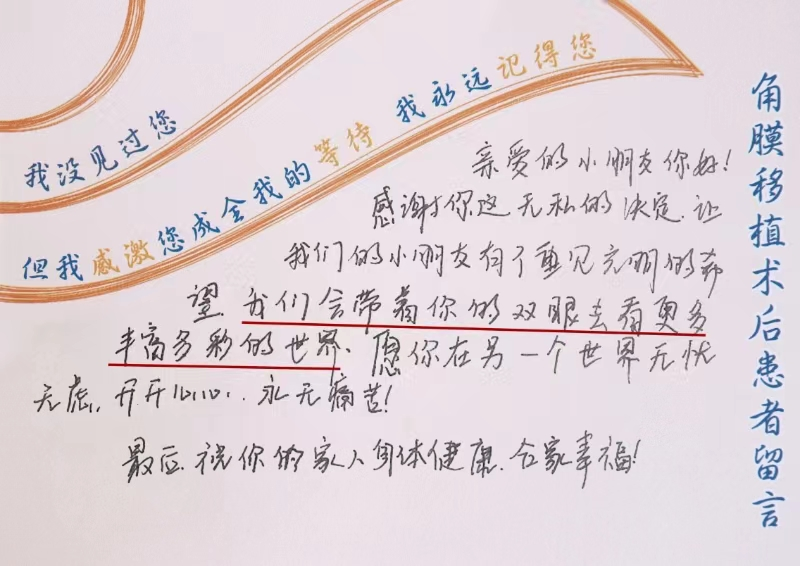 我没见过您
但我感激您成全我的等待 我永远记得您
角膜移植术后患者留言
亲爱的小朋友你好!
感谢你这无私的决定.让
我们的小朋友有了重见光明的希
望 我们会带着你的双眼去看更多
丰富多彩的世界、愿你在另一个世界无忧
无虑,开开心心、永无痛苦!
最后.祝你的家人身体健康.合家幸福!